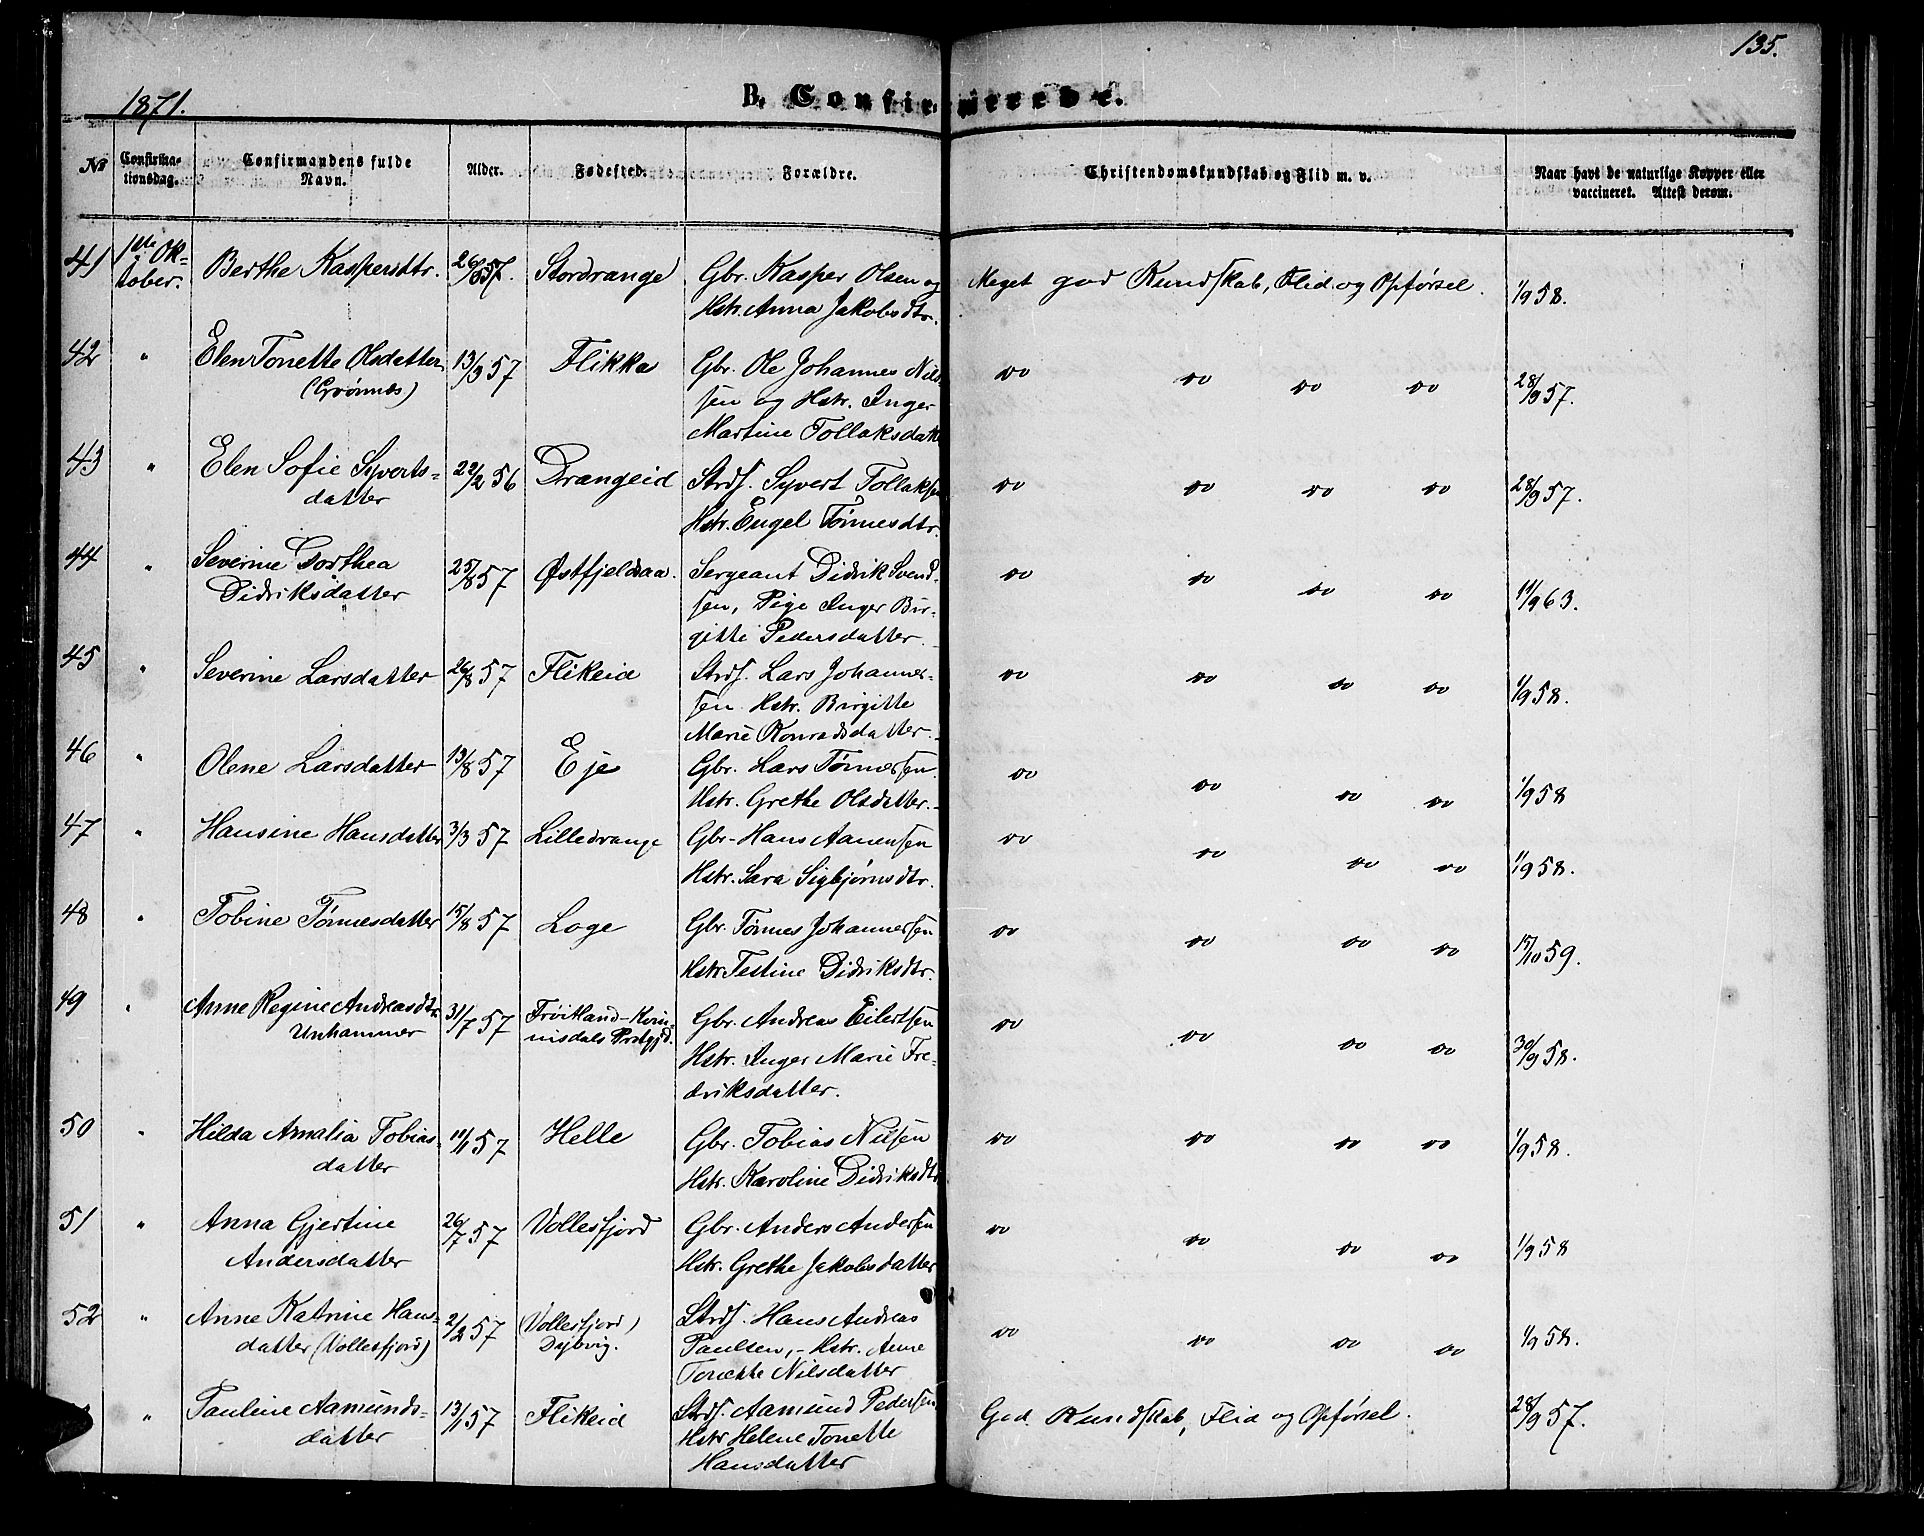 135.
1871.
B. Confirmerede.
No
Confirma-
tionsdag.
Confirmandens fulde
Navn.
Alder.
Fødested.
Forældre.
Christendomskundskab og Flid m. v.
Naar havt de naturlige Kopper eller
vaccineret. Attest derom.
41 1ste Ok- Berthe Kaspersdtr. 26/8 57. Stordrange Gbr. Kasper Olsen og Meget god Kundskab, Flid og Opførsel. 1/9 58.
tober. Hstr. Anna Jakobsdtr.
42 " Elen Tonette Olsdatter 13/9 57 Flikka Gbr. Ole Johannes Nil- do do do do 28/9 57.
(Grønnes) sen og Hstr. Inger
Martine Tollaksdatt
43 " Elen Sofie Syverts- 22/2 56 Drangeid Strds. Syvert Tollaksen do do do do 28/9 57.
datter Hstr. Engel Tønnesdtr.
44 " Severine Dorthea 25/8 57 Østfjeldsaa. Sergeant Didrik Svend- do do do do 11/9 63.
Didriksdatter sen, Pige Inger Bir-
gitte Pedersdatter.
45 " Severine Larsdatter 26/8 57 Flikeid Strds. Lars Johannes- do do do do 1/9 58.
sen Hstr. Birgitte
Marie Konradsdatter.
46 " Olene Larsdatter 13/8 57 Eje Gbr. Lars Tønnessen do do do do 1/9 58
Hstr. Grethe Olsdatter.
47 " Hansine Hansdatter 3/3 57 Lilledrange Gbr. Hans Aanensen do do do do 1/9 58.
Hstr. Sara Sigbjørnsdtr.
48 " Tobine Tønnesdatter 15/8 57 Loge Gbr. Tønnes Johannessen do do do do 15/10 59.
Hstr. Testine Didriksdtr.
49 " Anne Regine Andreasdtr 31/7 57 Frøitland-Kvin- Gbr. Andreas Eilertsen do do do do 30/9 58.
Unhammer nisdals Prstgjd. Hstr. Inger Marie Fre-
driksdatter.
50 " Hilda Amalia Tobias- 11/1 57 Helle Gbr. Tobias Nilsen do do do do 1/9 58.
datter Hstr. Karoline Didriksdtr
51 " Anna Gjertine 26/7 57 Vollesfjord Gbr. Anders Andersen do do do do 1/9 58
Andersdatter Hstr. Grethe Jakobsdatter
52 " Anne Katrine Hans- 2/2 57 (Vollesfjord) Strds. Hans Andreas do do do do 1/9 58.
datter (Vollesfjord) Dybvig. Paulsen, - Hstr. Anne
Tonette Nilsdatter
" Pauline Aamunds- 13/1 57 Flikeid Strds. Aamund Pedersen God Kundskab, Flid og Opførsel. 28/9 57.
datter Hstr Helene Tonette
Hansdatter